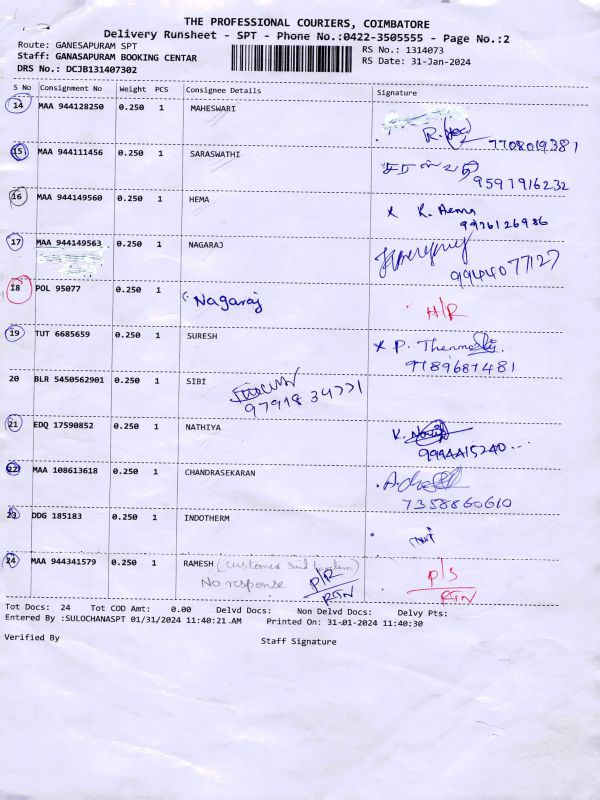 THE PROFESSIONAL COURIERS, COIMBATORE
Delivery Runsheet - SPT - Phone No.:0422-3505555 - Page No.:2
Route: GANESAPURAM SPT
RS No.: 1314073
Staff: GANASAPURAM BOOKING CENTAR
RS Date: 31-Jan-2024
DRS No.: DCJB131407302
S No Consignment No Weight PCS Consignee Details Signature
14 MAA 944128250 0.250 1 MAHESWARI
7708019381
15 MAA 944111456 0.250 1 SARASWATHI சரஸ்வதி
9597916232
16 MAA 944149560 0.250 1 HEMA x K. Hema
9926126986
17 MAA 944149563 0.250 1 NAGARAJ
9944077127
18 POL 95077 0.250 1 Nagaraj H/R
19 TUT 6685659 0.250 1 SURESH x P.
9789687481
20 BLR 5450562901 0.250 1 SIBI
9791834771
21 EDQ 17590852 0.250 1 NATHIYA K.
9994415240
22 MAA 108613618 0.250 1 CHANDRASEKARAN
7358860610
23 DDG 185183 0.250 1 INDOTHERM
24 MAA 944341579 0.250 1 RAMESH (customer
No response P/R RTN P/S RTN
Tot Docs: 24 Tot COD Amt: 0.00 Delvd Docs: Non Delvd Docs: Delvy Pts:
Entered By :SULOCHANASPT 01/31/2024 11:40:21 AM Printed On: 31-01-2024 11:40:30
Verified By Staff Signature